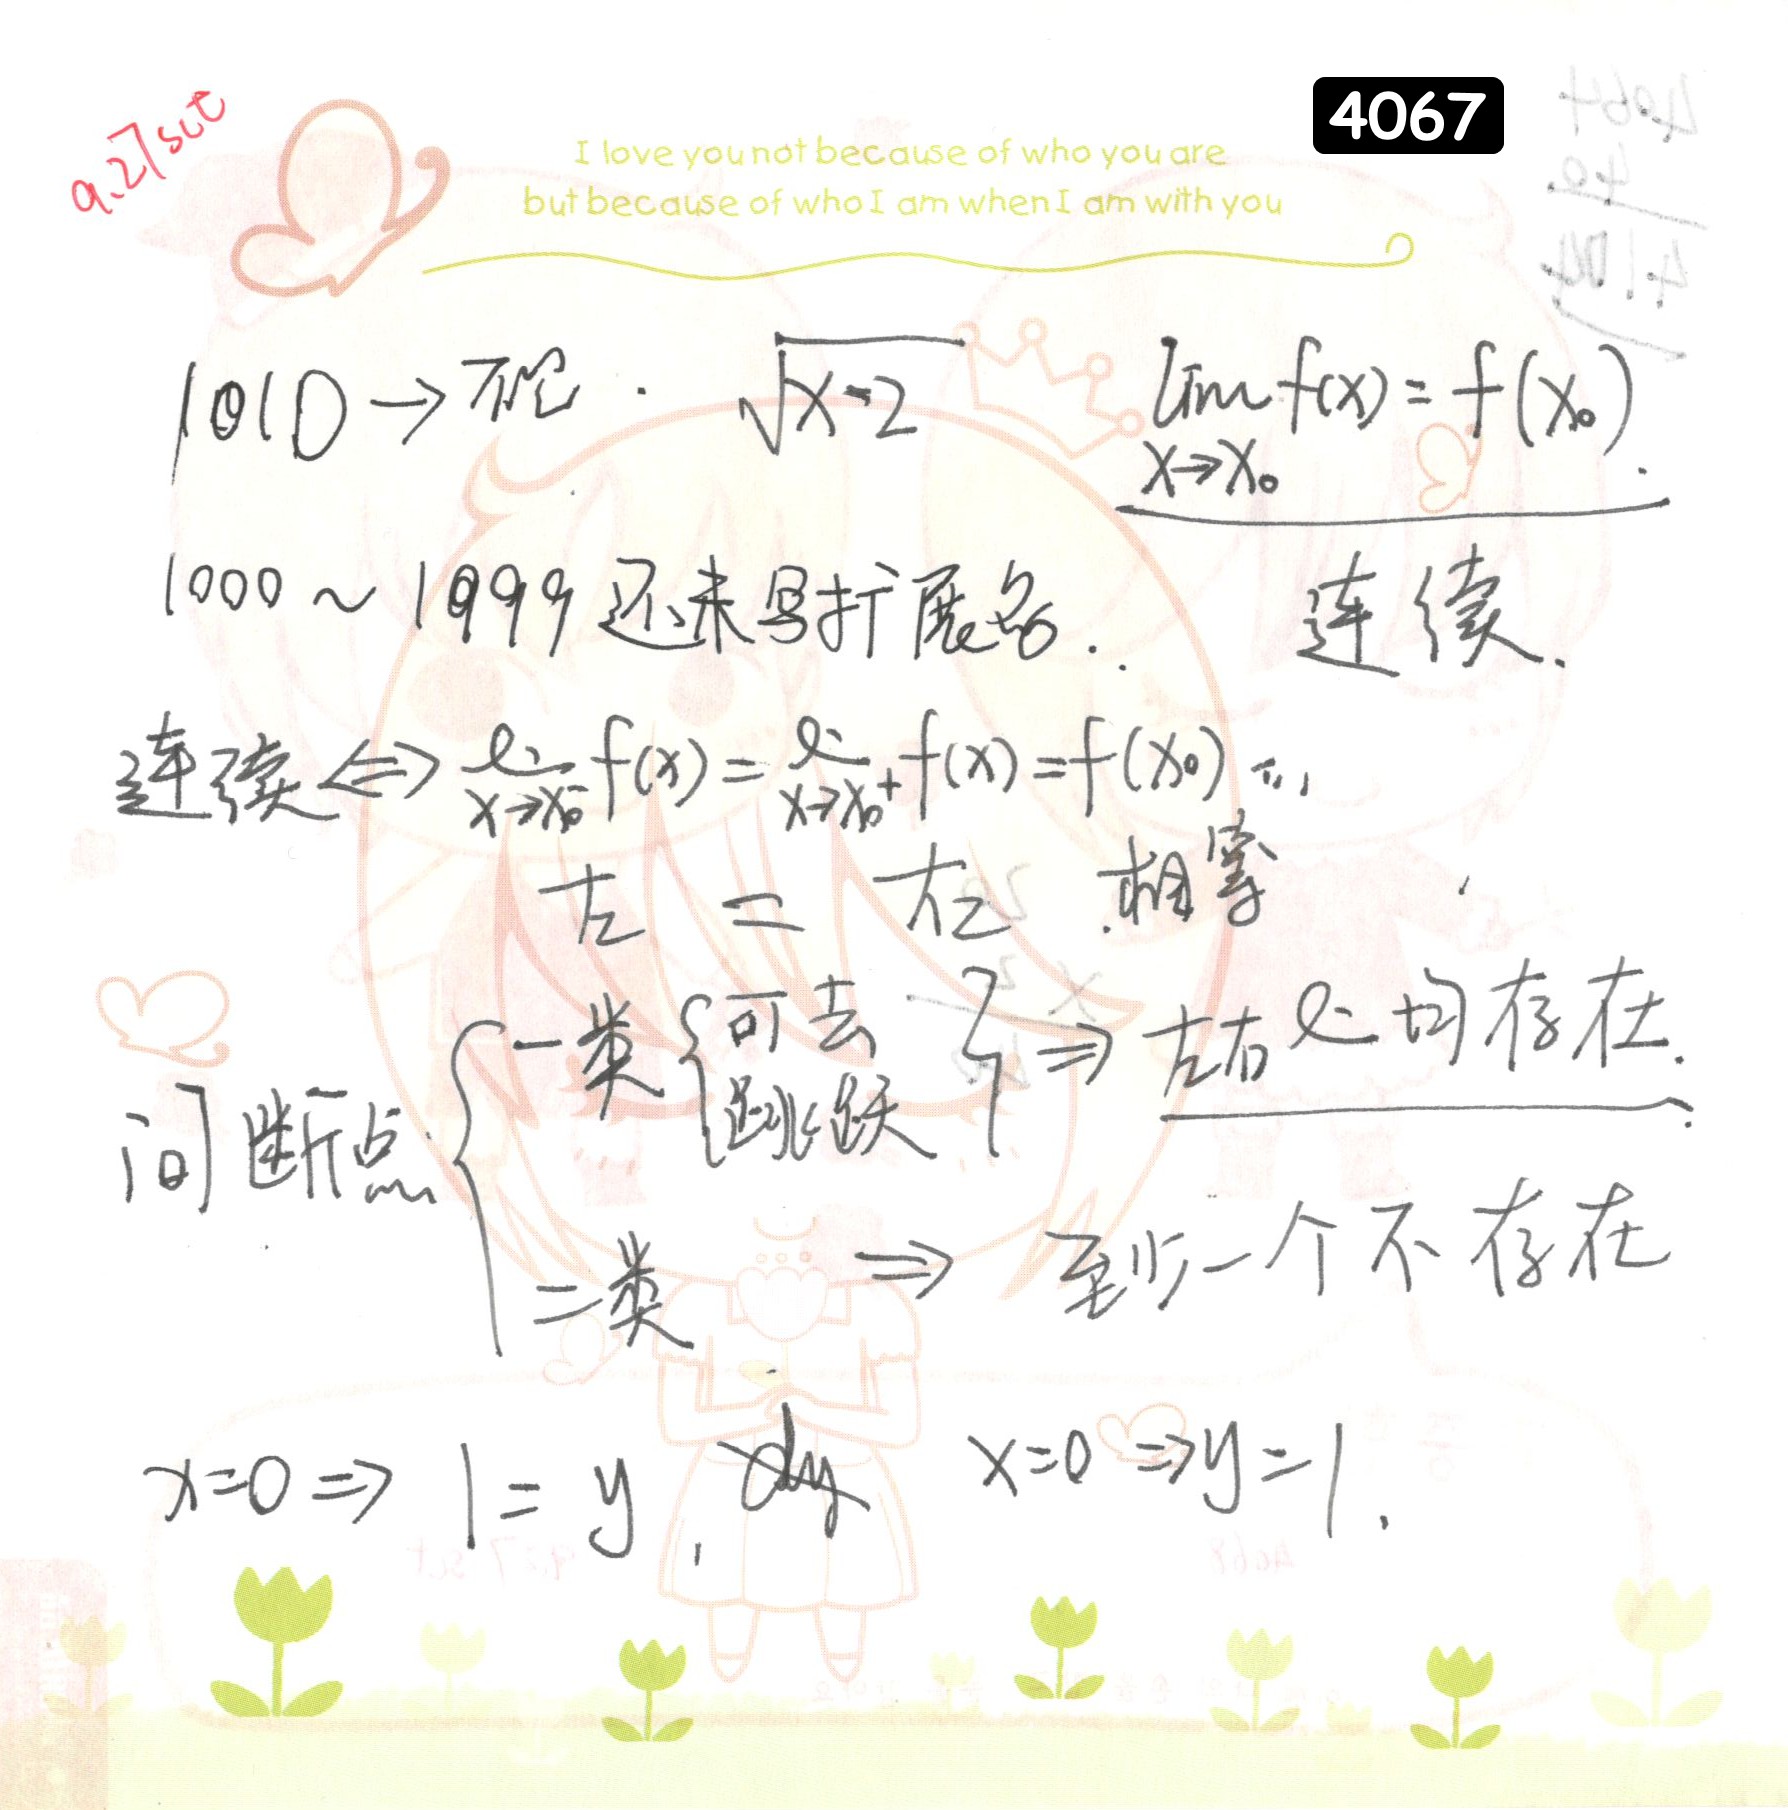 9.27 sat
4067
I love you not because of who you are
but because of who I am when I am with you
1010 → √x-2 lim f(x) = f(x₀).
x→x₀
1000 ~ 1999 还未写扩展名.. 连续.
连续 ⇔ f(x) = f(x) = f(x₀)
x→x₀⁻ x→x₀⁺
左 = 右 相等
间断点 { 一类 { 可去 跳跃 } ⇒ 左右 均存在.
二类 ⇒ 至少一个不存在
x=0 ⇒ 1=y, x=0 ⇒ y=1.